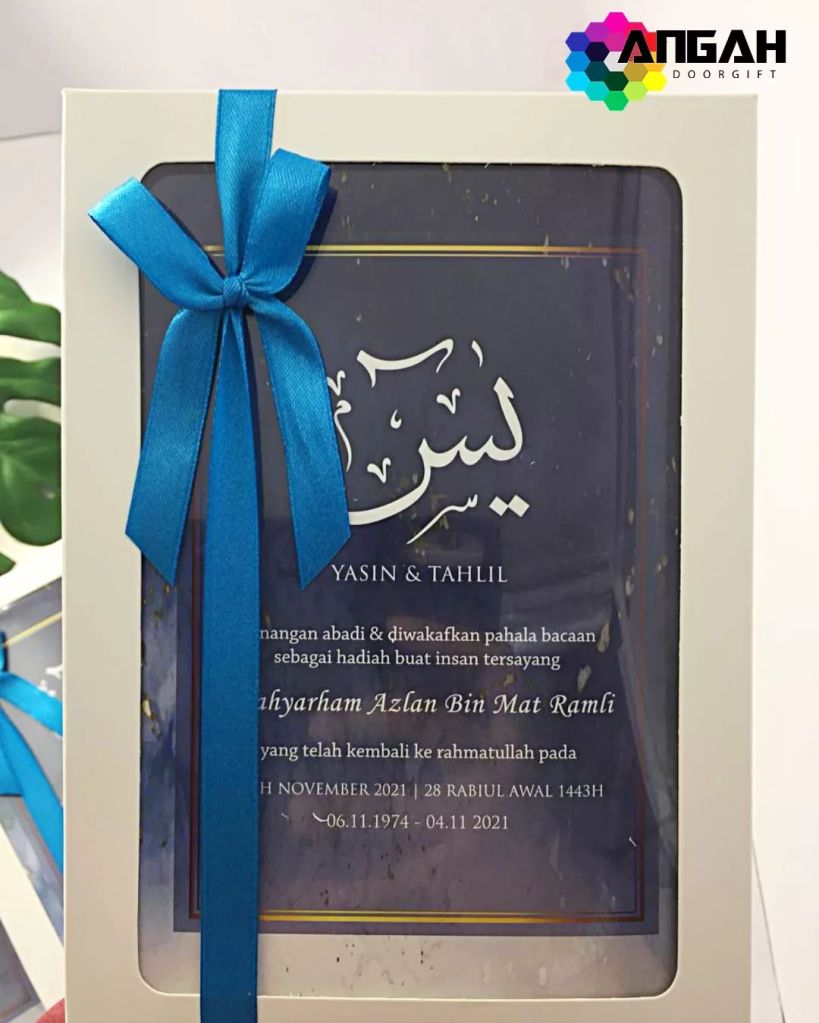 ANGAH
DOORGIFT
يس
YASIN & TAHLIL
nangan abadi & diwakafkan pahala bacaan
sebagai hadiah buat insan tersayang
ahyarham Azlan Bin Mat Ramli
yang telah kembali ke rahmatullah pada
H NOVEMBER 2021 | 28 RABIUL AWAL 1443H
06.11.1974 - 04.11 2021